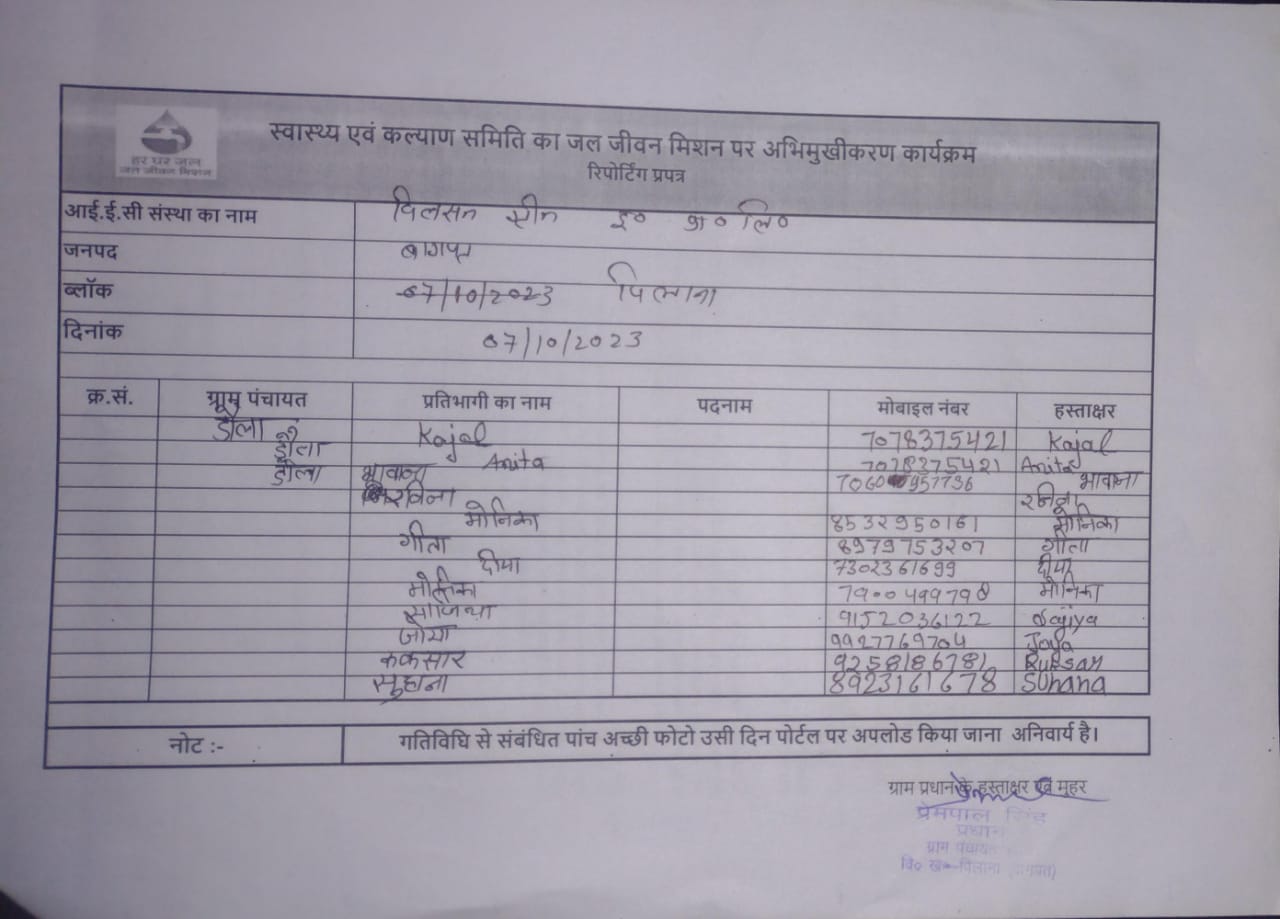 हर घर जल
जल जीवन मिशन
स्वास्थ्य एवं कल्याण समिति का जल जीवन मिशन पर अभिमुखीकरण कार्यक्रम
रिपोर्टिंग प्रपत्र
आई.ई.सी संस्था का नाम दिलसन ग्रीन इ० प्रा० लि०
जनपद बागपत
ब्लॉक 07/10/2023 पिलाना
दिनांक 07/10/2023
क्र.सं. ग्राम पंचायत प्रतिभागी का नाम पदनाम मोबाइल नंबर हस्ताक्षर
डौला Kajal 7078375421 Kajal
डौला Anita 7078375421 Anita
डौला भावाना 957736 भावाना
मोनिका 8532950161 मोनिका
गीता 8979753207 गीता
दीपा 7302361699 दीपा
मोनिका 7900499798 मोनिका
साजिया 9152036122 Sajiya
जोया 9927769704 Joya
रुकसार 9258186781 Ruksar
सुहाना 8923161678 Suhana
नोट :- गतिविधि से संबंधित पांच अच्छी फोटो उसी दिन पोर्टल पर अपलोड किया जाना अनिवार्य है।
ग्राम प्रधान के हस्ताक्षर एवं मुहर
प्रेमपाल सिंह
प्रधान
ग्राम पंचायत
वि० ख०-पिलाना (बागपत)